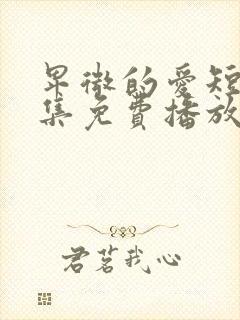 卑微的爱短
集免費播放
君茗我心